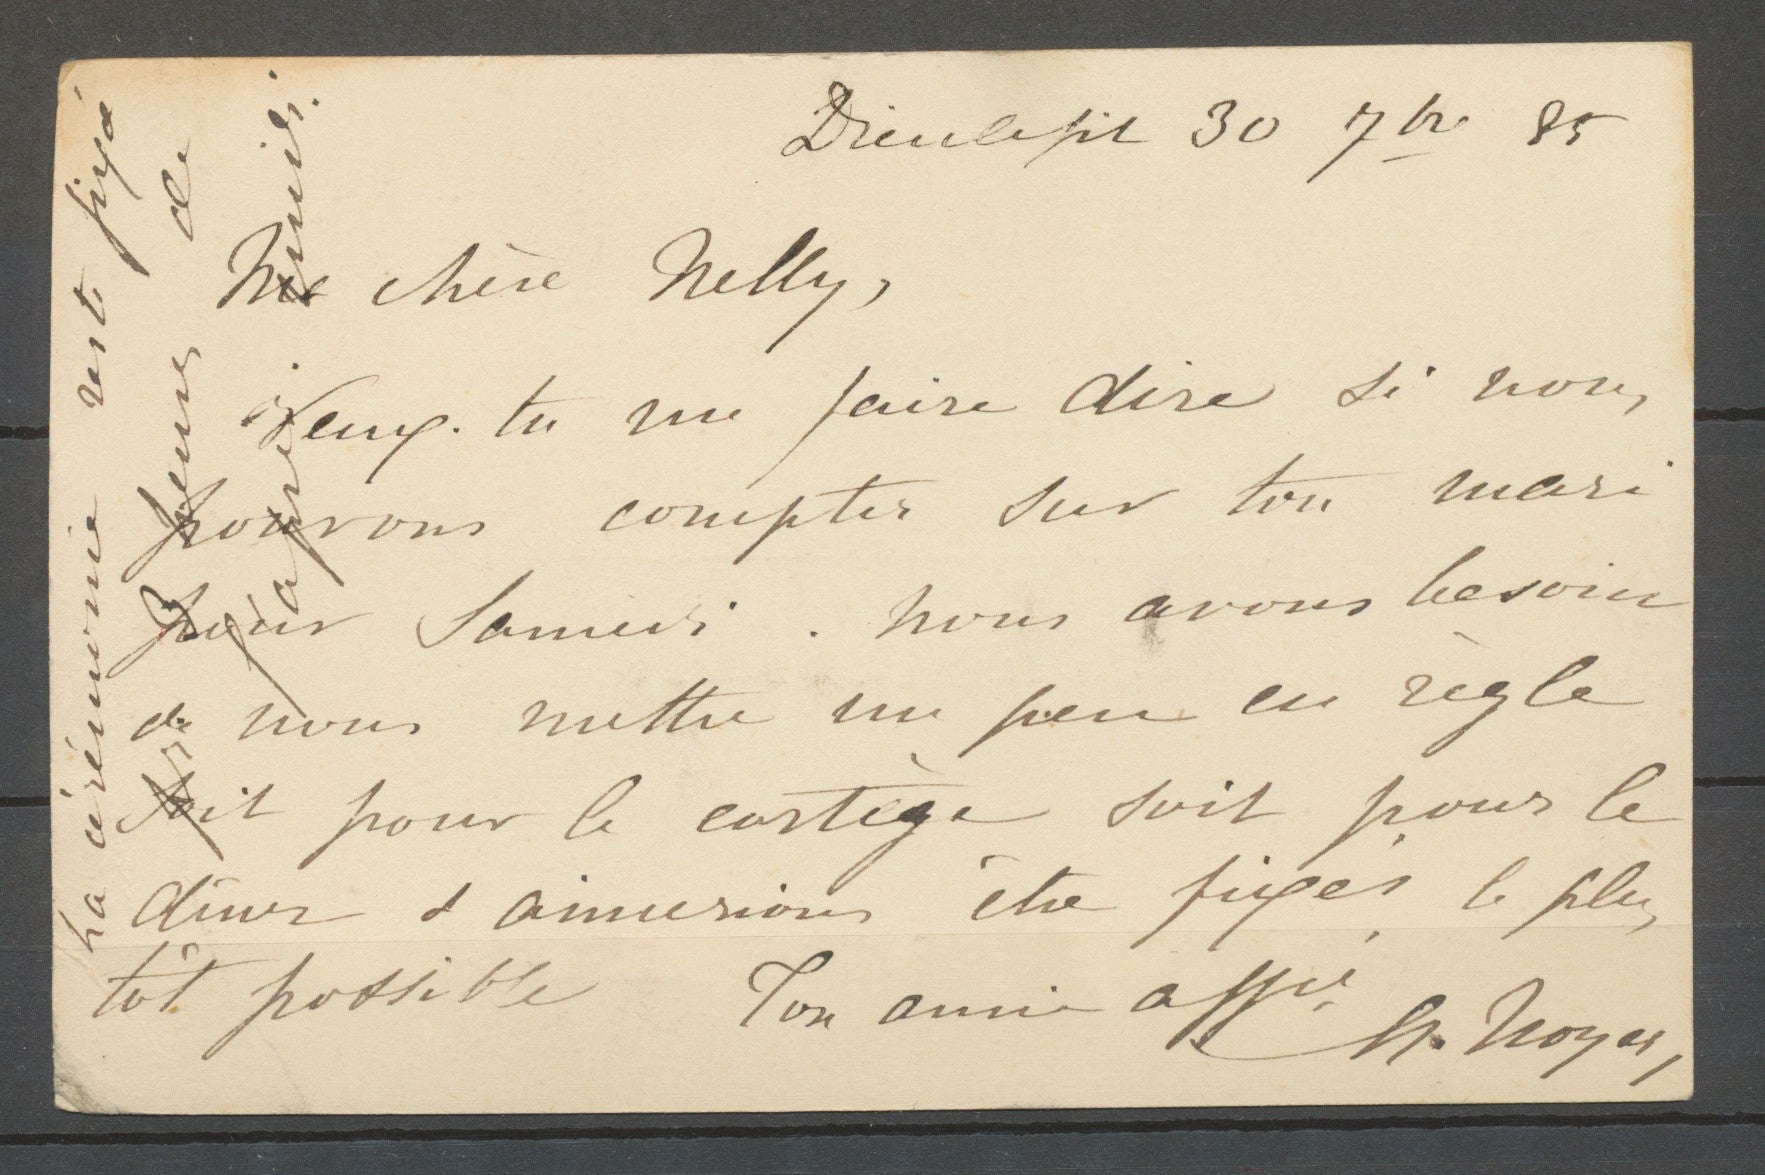 Dieulefit 30 7bre 85
Ma chère Nelly,
Veux-tu me faire dire si nous
pouvons compter sur ton mari
pour Samedi. Nous avons besoin
de nous mettre un peu en règle
soit pour le cortège soit pour le
dîner & aimerions être fixés le plus
tôt possible Ton amie affée
Noyer,
La cérémonie reste fixée
heures de
après midi.